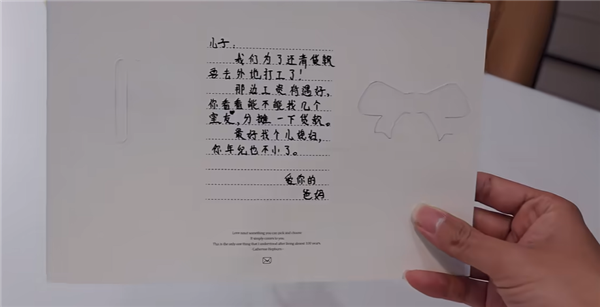 儿子：
我们为了还清贷款
要去外地打工了！
那边工资待遇好，
你看看能不能找几个
室友，分摊一下贷款。
最好找个儿媳妇，
你年纪也不小了。
爱你的
爸妈